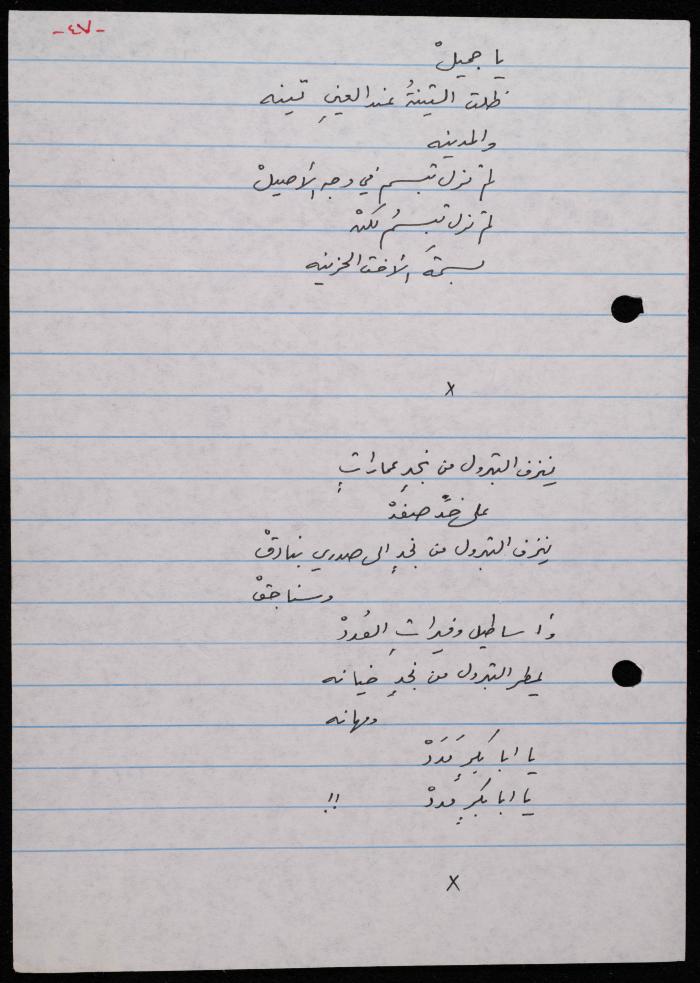 -٤٧-
يا جميلْ
ظلت التينةُ عند العينِ تينه
والمدينه
لم تزل تبسم في وجه الأصيلْ
لم تزل تبسمُ لكنْ
بسمةَ الأفق الحزينه
x
ينزف البترول من نجدٍ عماراتٍ
على خدِّ صفدْ
ينزف البترول من نجدٍ الى صدري بنادقْ
وسناجقْ
وأساطيل وفيراتِ العُددْ
يمطر البترول من نجدٍ خيانه
ومهانه
يا ابا بكرٍ مَدَدْ
يا ابا بكرٍ مددْ !!
x